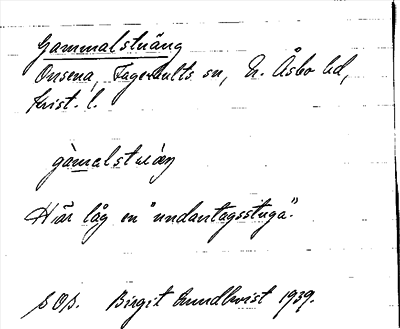 Gammalsträng
Onsena, Fagerhults sn, N. Åsbo hd,
Krist. l.
gàmalstræ̀ŋ
Här låg en "undantagsstuga".
SOB. Birgit Sundkvist 1939.